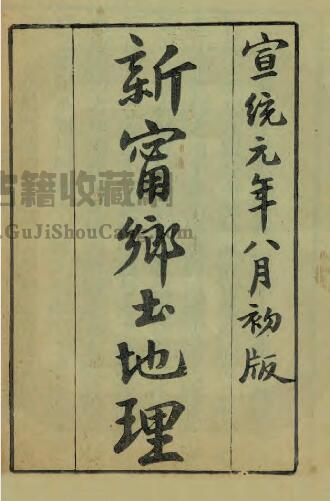 宣統元年八月初版
新甯鄉土地理
古籍收藏网
www.GuJiShouCang.com